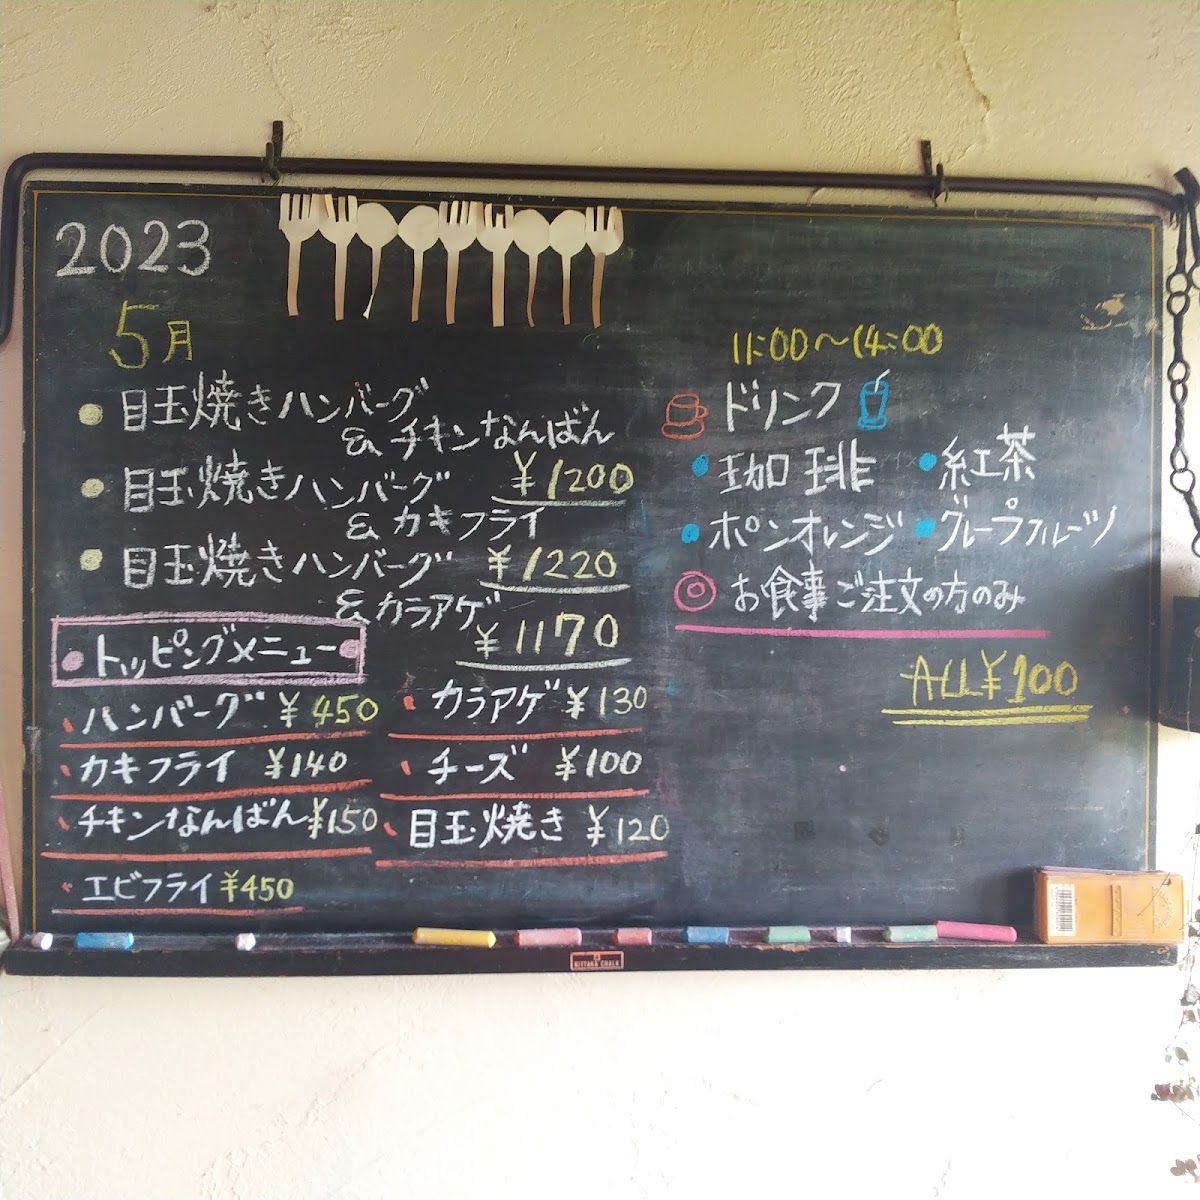 2023
5月
目玉焼きハンバーグ
& チキンなんばん
¥1200
目玉焼きハンバーグ
& カキフライ
¥1220
目玉焼きハンバーグ
& カラアゲ
¥1170
トッピングメニュー
ハンバーグ ¥450
カラアゲ ¥130
カキフライ ¥140
チーズ ¥100
チキンなんばん ¥150
目玉焼き ¥120
エビフライ ¥450
11:00〜14:00
ドリンク
珈琲 紅茶
ポンオレンジ グレープフルーツ
お食事ご注文の方のみ
ALL ¥100
NITTAKU CHALK